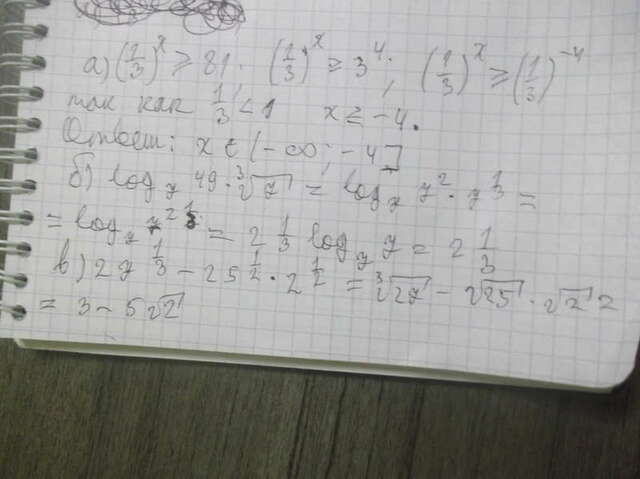 а) (1/3)^x ≥ 81. (1/3)^x ≥ 3^4; (1/3)^x ≥ (1/3)^-4
так как 1/3 < 1 x ≤ -4.
Ответ: x ∈ (-∞; -4]
б) log_7 49 · ∛7 = log_7 7^2 · 7^1/3 =
= log_7 7^2 1/3 = 2 1/3 log_7 7 = 2 1/3
в) 27^1/3 - 25^1/2 · 2^1/2 = ∛27 - √25 · √2 =
= 3 - 5√2